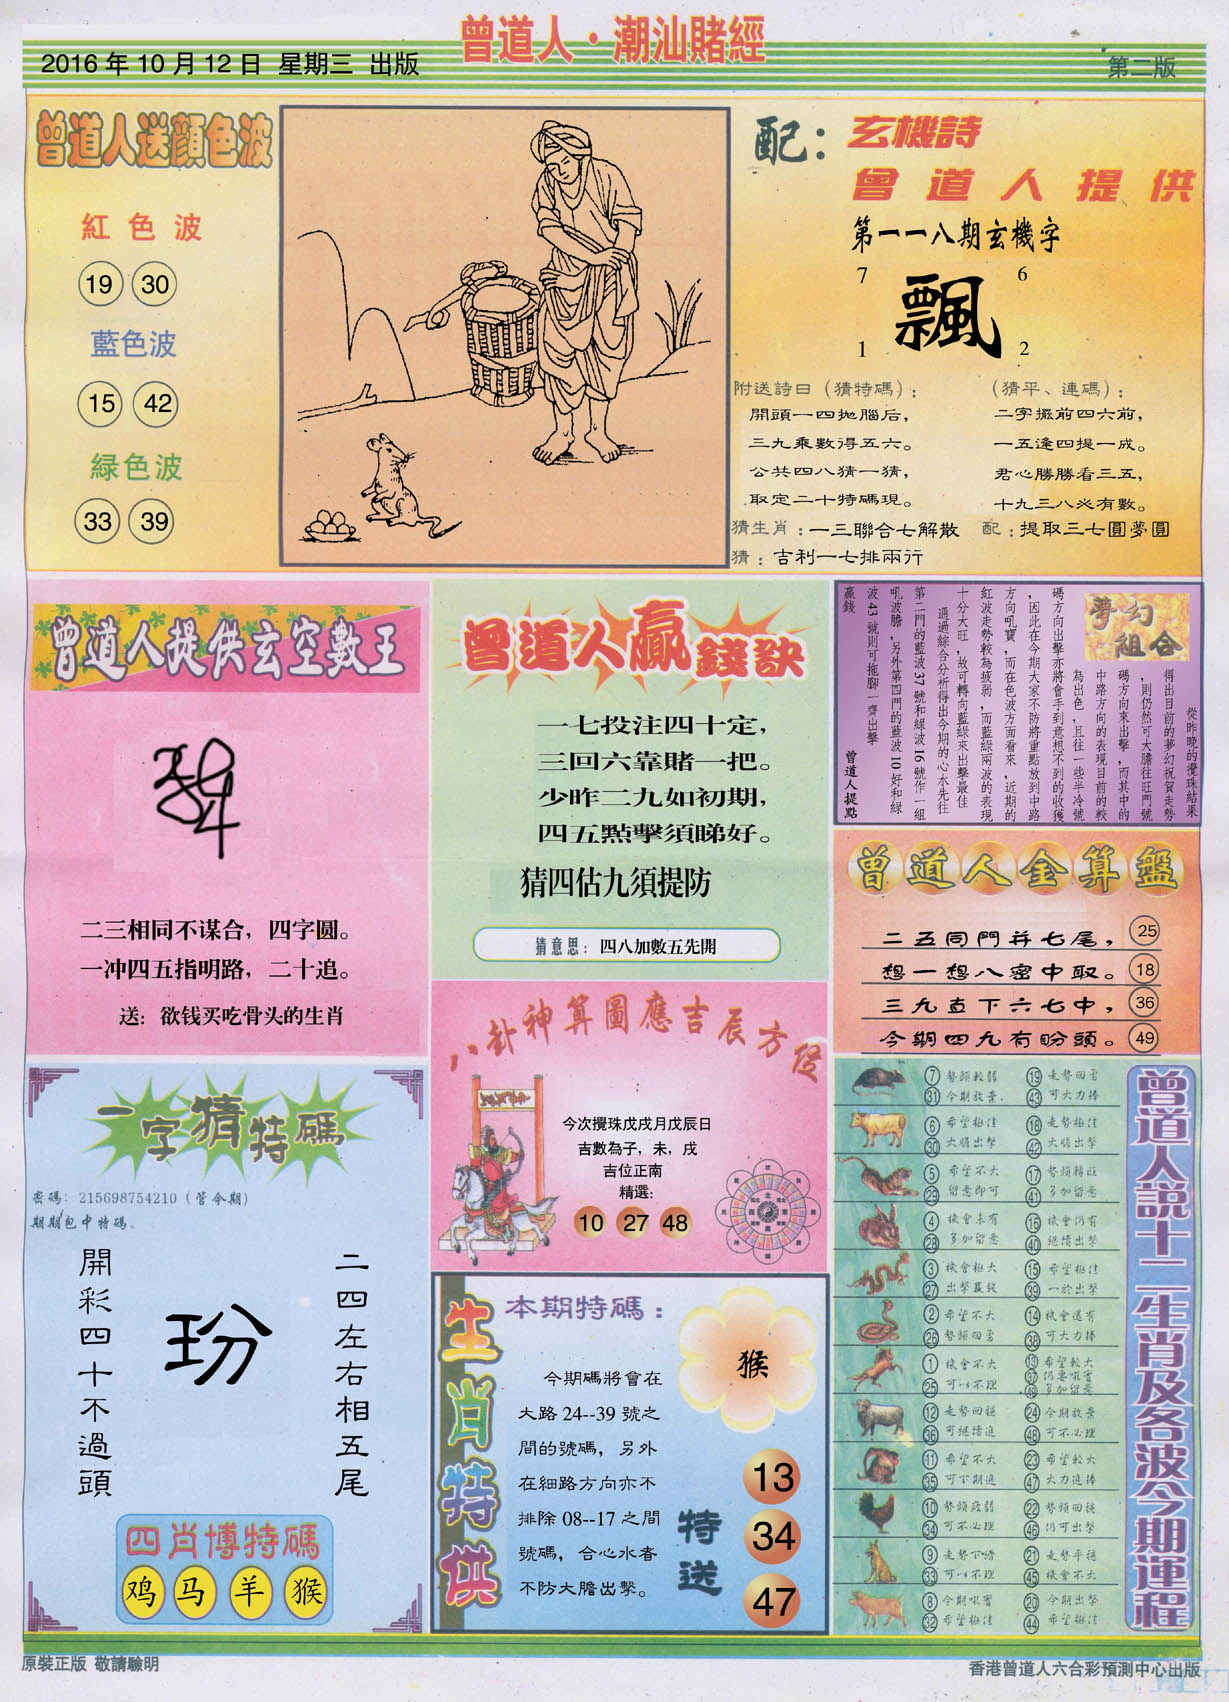 曾道人·潮汕賭經
2016年10月12日 星期三 出版
第二版
曾道人送顏色波
紅色波
19 30
藍色波
15 42
緑色波
33 39
配：玄機詩
曾道人提供
第一一八期玄機字
7 6
飄
1 2
附送詩曰（猜特碼）：
開頭一四拋腦后，
三九乘數得五六。
公共四八猜一猜，
取定二十特碼現。
（猜平、連碼）：
二字攞前四六前，
一五逢四提一成。
君心勝勝看三五，
十九三八必有數。
猜生肖：一三聯合七解散 配：提取三七圓夢圓
猜：吉利一七排兩行
曾道人提供玄空數王
二三相同不谋合，四字圆。
一冲四五指明路，二十追。
送：欲钱买吃骨头的生肖
曾道人贏錢訣
一七投注四十定，
三回六靠賭一把。
少昨二九如初期，
四五點擊須睇好。
猜四估九須提防
猜意思：四八加數五先開
夢幻
組合
從昨晚的攪珠結果
得出目前的夢幻祝賀走勢
，則仍然可大膽往旺門號
碼方向來出擊，而其中的
中路方向的表現目前的較
為出色，且往一些半冷號
碼方向出擊亦將會手到意想不到的收獲
，因此在今期大家不防將重點放到中路
方向吼寶，而在色波方面看來，近期的
紅波走勢較為疲弱，而藍綠兩波的表現
十分大旺，故可轉向藍綠來出擊最佳
通過綜合分析得出今期的心水先往
第二門的藍波37號和綠波16號作一組
吼波膽，另外第四門的藍波10好和綠
波43號則可拖腳一齊出擊
贏錢
曾道人提點
曾道人金算盤
二五同門并七尾， 25
想一想八密中取。 18
三九直下六七中， 36
今期四九有盼頭。 49
八卦神算圖應吉辰方位
今次攪珠戊戌月戊辰日
吉數為子，未，戌
吉位正南
精選：
10 27 48
一字猜特碼
密碼：215698754210（管今期）
期期包中特碼。
開彩四十不過頭
玢
二四左右相五尾
四肖博特碼
鸡 马 羊 猴
生肖特供
本期特碼：
猴
今期碼將會在
大路24--39號之
間的號碼，另外
在細路方向亦不
排除08--17之間
號碼，合心水者
不防大膽出擊。
特送
13
34
47
曾道人說十二生肖及各波今期運程
7 勢頭較弱 19 走勢回勇
31 今期放棄. 43 可大力捧
6 希望極佳 18 走勢極佳
30 大膽出擊 42 大膽出擊
5 希望不大 17 勢頭轉旺
29 留意即可 41 多加留意
4 機會未有 16 機會仍有
28 多加留意 40 繼續出擊
3 機會極大 15 希望極佳
27 出擊贏錢 39 一於出擊
2 希望不大 14 機會還有
26 勢頭回勇 38 可大力捧
1 機會不大 13 希望較大
25 可以不理 37 仍要吸實
49 多加留意
12 走勢回穩 24 今期放棄
36 可繼續追 48 可不必理
11 希望不大 23 希望較大
35 可下期追 47 大力追捧
10 勢頭疲弱 22 勢頭回穩
34 可不必理 46 仍可出擊
9 走勢下滑 21 走勢平穩
33 可以不理 45 機會不大
8 今期吸實 20 今期出擊
32 希望極佳 44 希望極佳
原裝正版 敬請驗明
香港曾道人六合彩預測中心出版